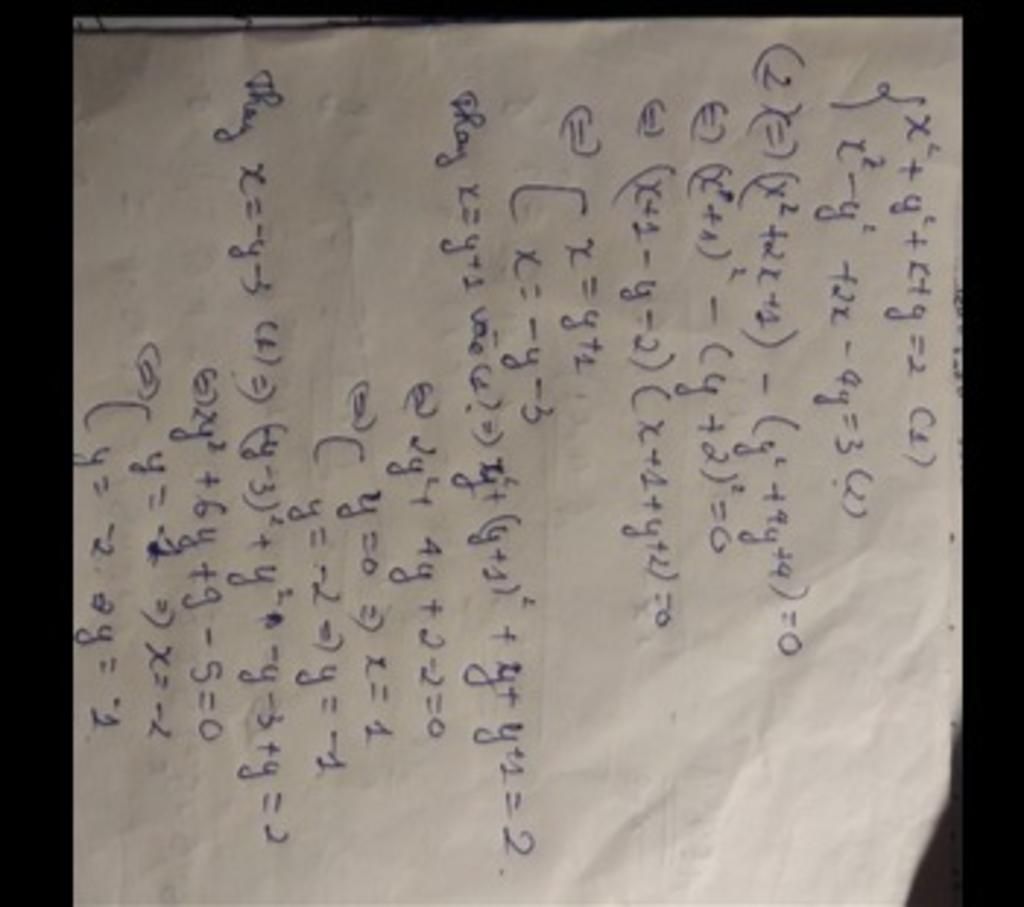 { x² + y² + x + y = 2 (1)
x² - y² + 2x - 4y = 3 (2)
(2) <=> (x² + 2x + 1) - (y² + 4y + 4) = 0
<=> (x + 1)² - (y + 2)² = 0
<=> (x + 1 - y - 2)(x + 1 + y + 2) = 0
<=> [ x = y + 1
x = -y - 3
Thay x = y + 1 vào (1) => y² + (y + 1)² + y + y + 1 = 2
<=> 2y² + 4y + 2 - 2 = 0
<=> [ y = 0 => x = 1
y = -2 => y = -1
Thay x = -y - 3 (1) => (-y - 3)² + y² - y - 3 + y = 2
<=> 2y² + 6y + 9 - 5 = 0
<=> [ y = -1 => x = -2
y = -2 => y = -1